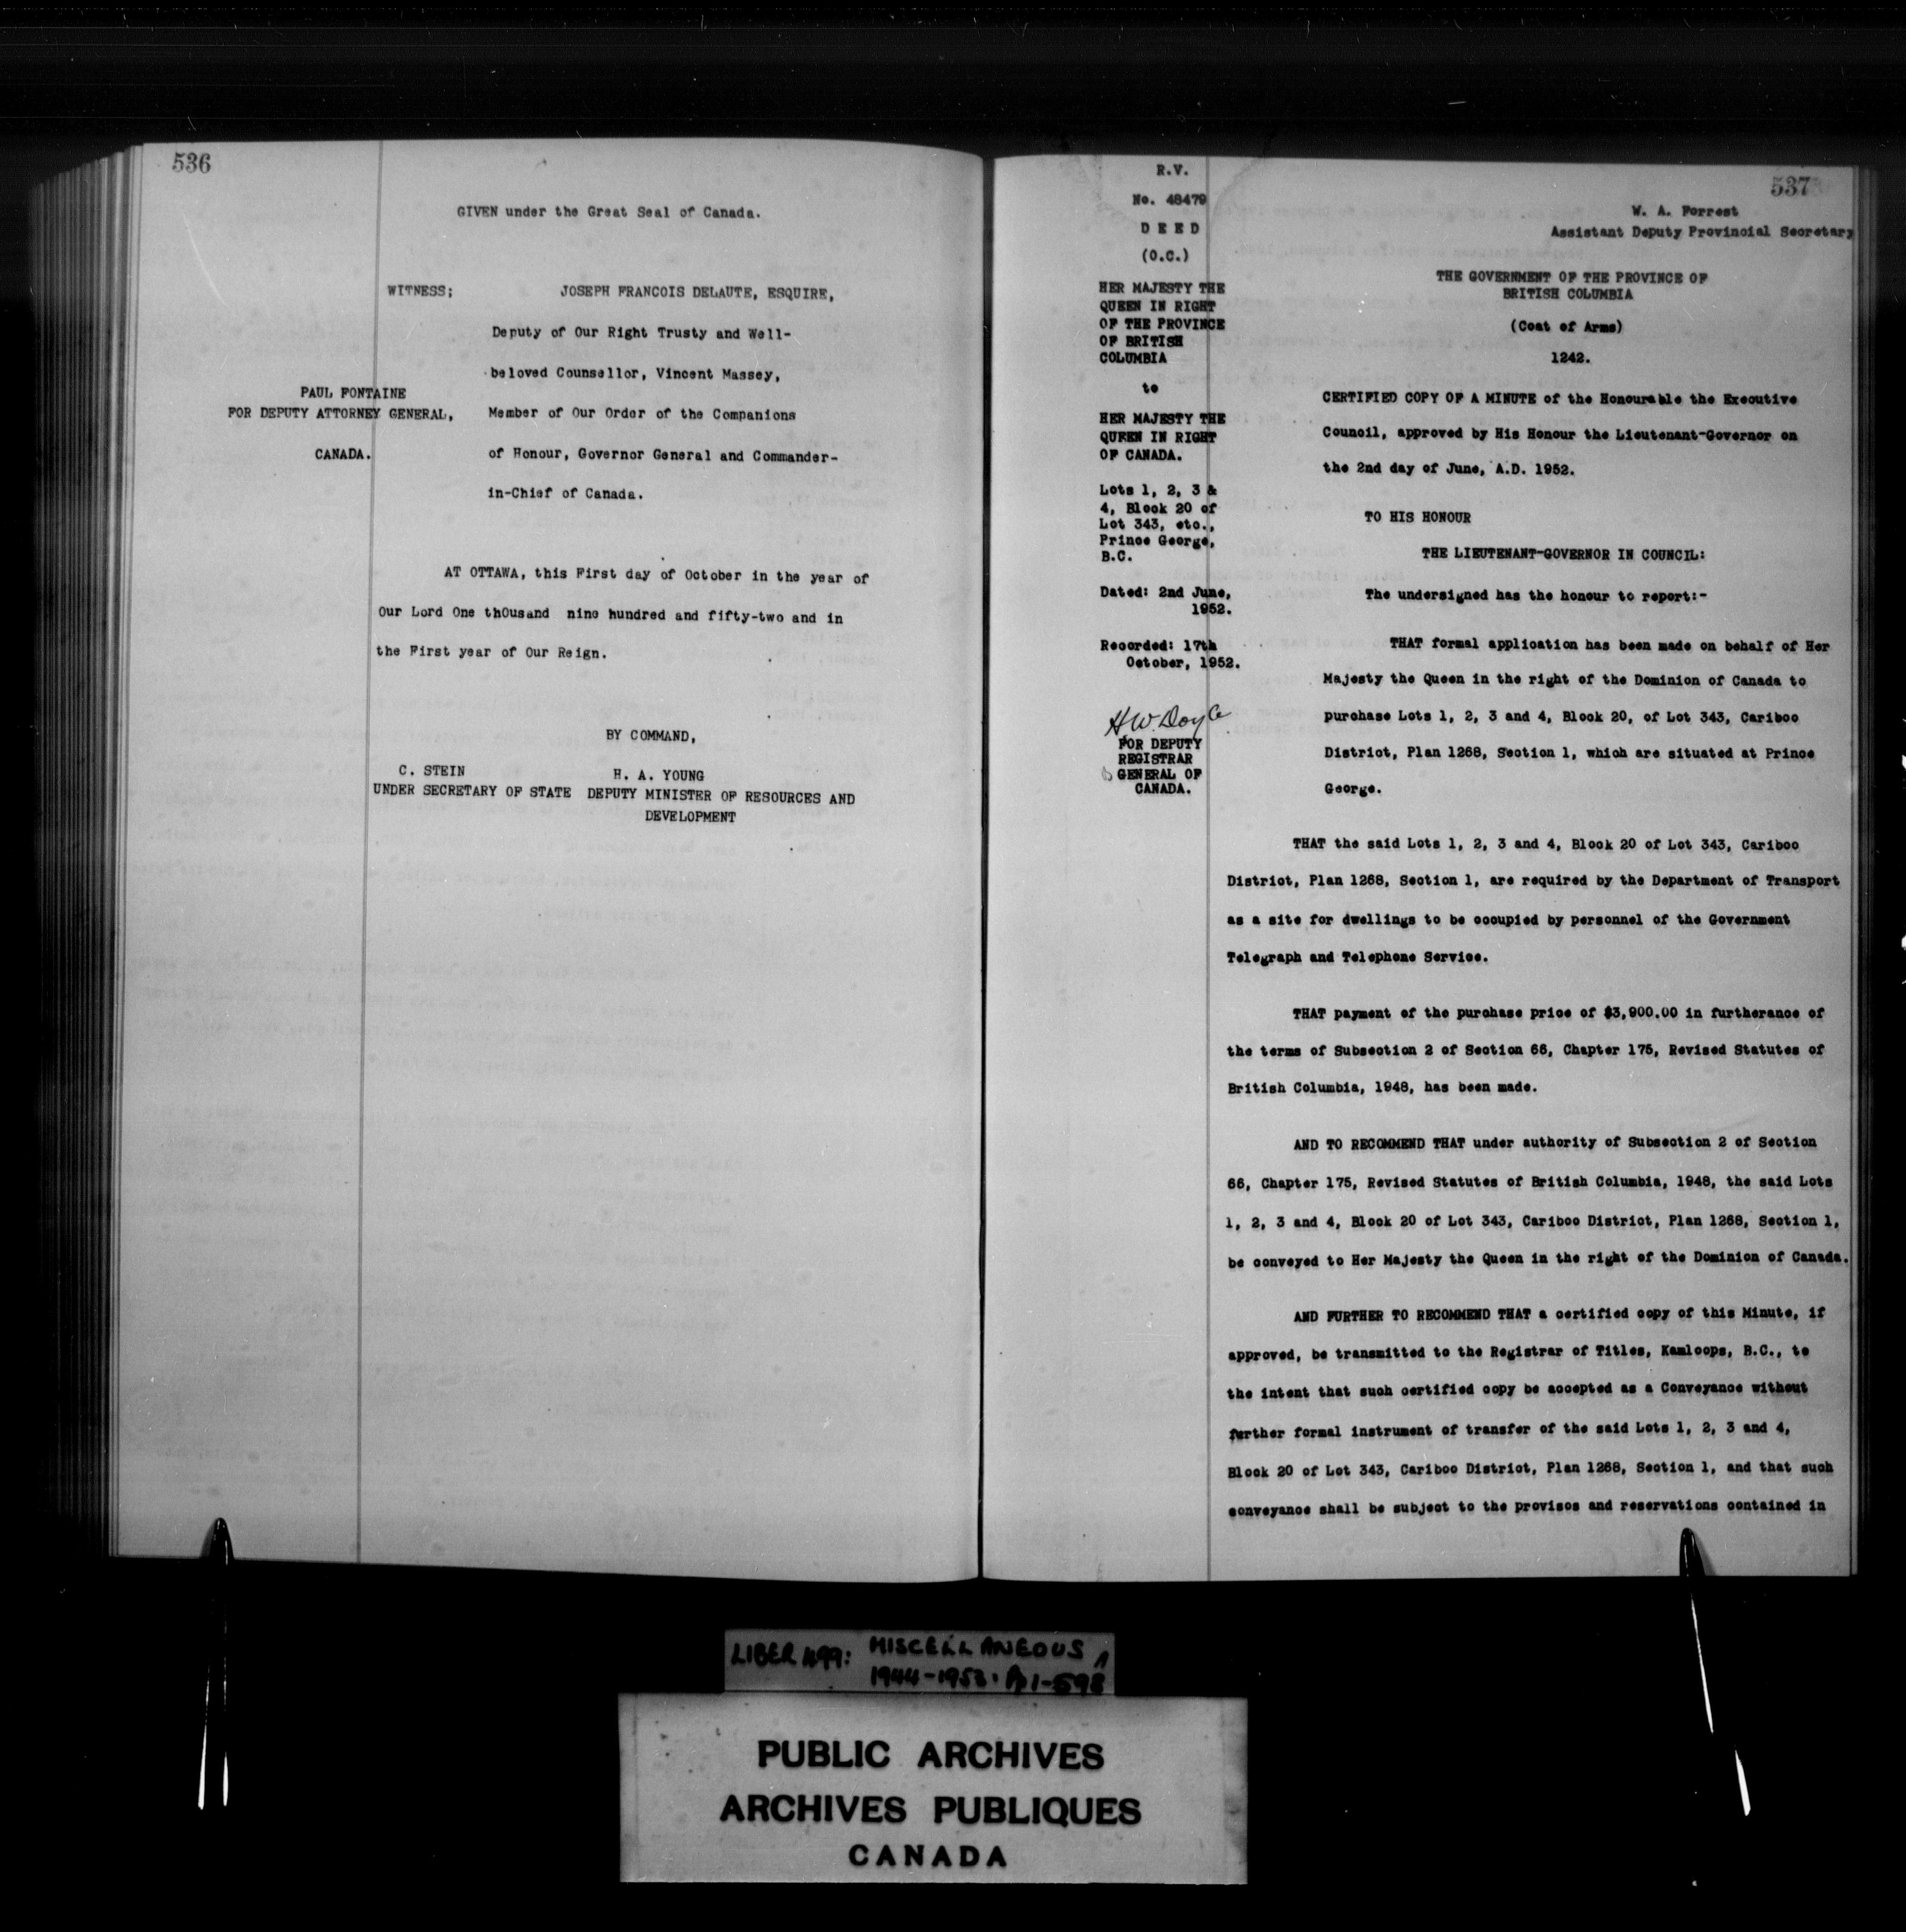 536
GIVEN under the Great Seal of Canada.
WITNESS; JOSEPH FRANCOIS DELAUTE, ESQUIRE,
Deputy of Our Right Trusty and Well-
beloved Counsellor, Vincent Massey,
Member of Our Order of the Companions
of Honour, Governor General and Commander-
in-Chief of Canada.
PAUL FONTAINE
FOR DEPUTY ATTORNEY GENERAL,
CANADA.
AT OTTAWA, this First day of October in the year of
Our Lord One thOusand nine hundred and fifty-two and in
the First year of Our Reign.
BY COMMAND,
C. STEIN
UNDER SECRETARY OF STATE
H. A. YOUNG
DEPUTY MINISTER OF RESOURCES AND
DEVELOPMENT
R.V.
No. 48479
D E E D
(O.C.)
HER MAJESTY THE
QUEEN IN RIGHT
OF THE PROVINCE
OF BRITISH
COLUMBIA
to
HER MAJESTY THE
QUEEN IN RIGHT
OF CANADA.
Lots 1, 2, 3 &
4, Block 20 of
Lot 343, etc.,
Prince George,
B.C.
Dated: 2nd June,
1952.
Recorded: 17th
October, 1952.
H.W. Doyle
FOR DEPUTY
REGISTRAR
GENERAL OF
CANADA.
537
W. A. Forrest
Assistant Deputy Provincial Secretary
THE GOVERNMENT OF THE PROVINCE OF
BRITISH COLUMBIA
(Coat of Arms)
1242.
CERTIFIED COPY OF A MINUTE of the Honourable the Executive
Council, approved by His Honour the Lieutenant-Governor on
the 2nd day of June, A.D. 1952.
TO HIS HONOUR
THE LIEUTENANT-GOVERNOR IN COUNCIL:
The undersigned has the honour to report:-
THAT formal application has been made on behalf of Her
Majesty the Queen in the right of the Dominion of Canada to
purchase Lots 1, 2, 3 and 4, Block 20, of Lot 343, Cariboo
District, Plan 1268, Section 1, which are situated at Prince
George.
THAT the said Lots 1, 2, 3 and 4, Block 20 of Lot 343, Cariboo
District, Plan 1268, Section 1, are required by the Department of Transport
as a site for dwellings to be occupied by personnel of the Government
Telegraph and Telephone Service.
THAT payment of the purchase price of $3,900.00 in furtherance of
the terms of Subsection 2 of Section 66, Chapter 175, Revised Statutes of
British Columbia, 1948, has been made.
AND TO RECOMMEND THAT under authority of Subsection 2 of Section
66, Chapter 175, Revised Statutes of British Columbia, 1948, the said Lots
1, 2, 3 and 4, Block 20 of Lot 343, Cariboo District, Plan 1268, Section 1,
be conveyed to Her Majesty the Queen in the right of the Dominion of Canada.
AND FURTHER TO RECOMMEND THAT a certified copy of this Minute, if
approved, be transmitted to the Registrar of Titles, Kamloops, B.C., to
the intent that such certified copy be accepted as a Conveyance without
further formal instrument of transfer of the said Lots 1, 2, 3 and 4,
Block 20 of Lot 343, Cariboo District, Plan 1268, Section 1, and that such
conveyance shall be subject to the provisos and reservations contained in
LIBER 499: MISCELLANEOUS
1944-1953. Pp 1-598
PUBLIC ARCHIVES
ARCHIVES PUBLIQUES
CANADA